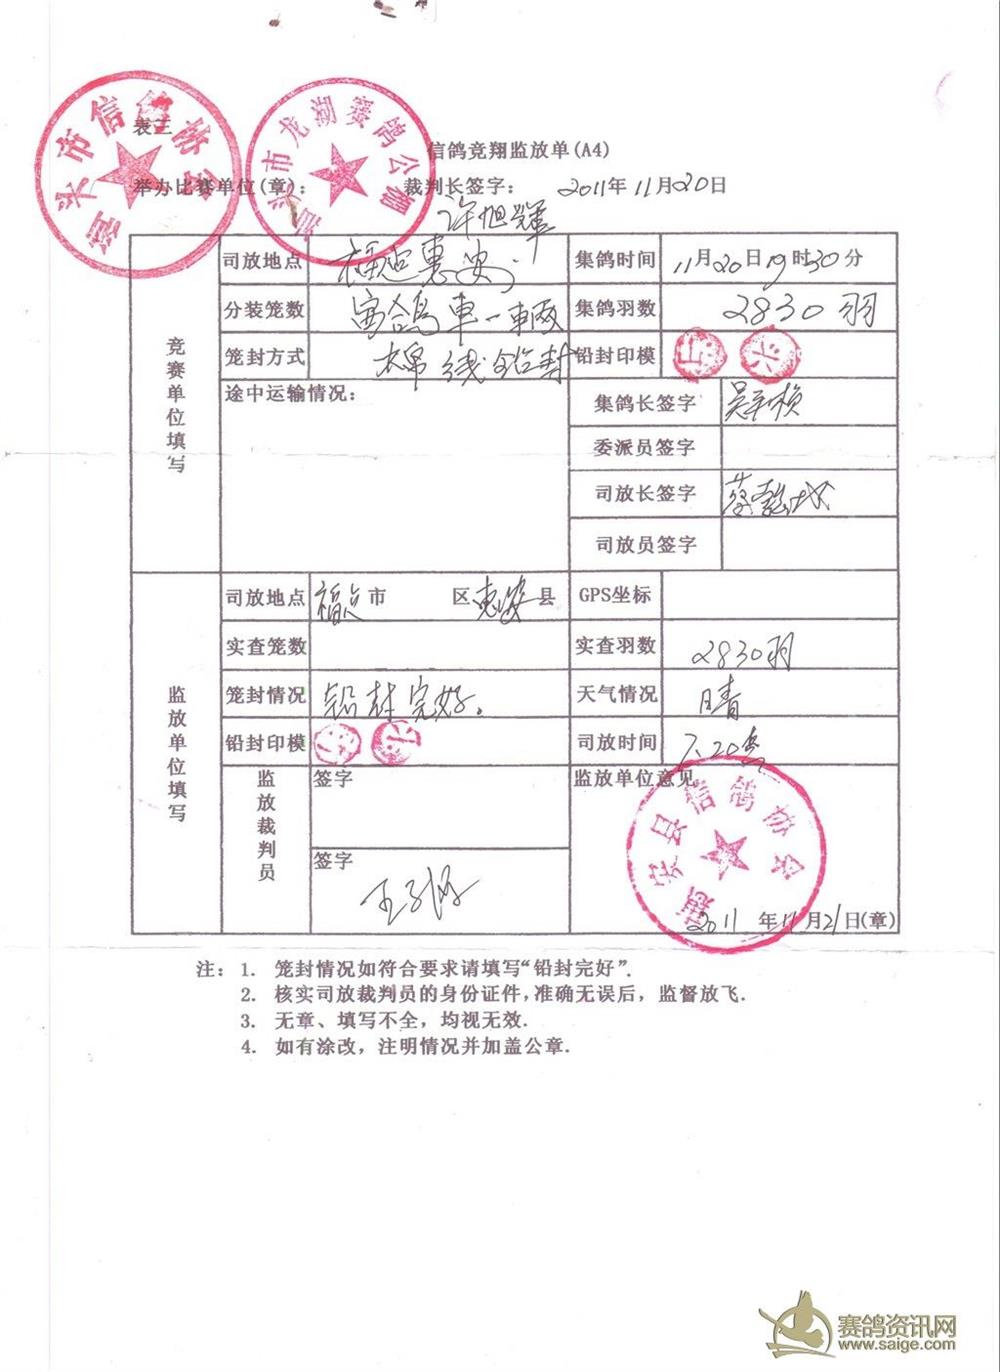 汕头市信鸽协会
汕头市龙湖赛鸽公棚
表三
信鸽竞翔监放单(A4)
举办比赛单位(章): 裁判长签字: 2011年11月20日
许旭辉
竞赛单位填写
司放地点 福建惠安 集鸽时间 11月20日19时30分
分装笼数 赛鸽车一辆 集鸽羽数 2830羽
笼封方式 棉线铅封 铅封印模
途中运输情况: 集鸽长签字
委派员签字
司放长签字
司放员签字
监放单位填写
司放地点 市 区 惠安县 GPS坐标
实查笼数 实查羽数 2830羽
笼封情况 铅封完好。 天气情况 晴
铅封印模 司放时间
监放裁判员 签字 监放单位意见
签字
惠安县信鸽协会
2011 年11月21日(章)
注: 1. 笼封情况如符合要求请填写“铅封完好”.
2. 核实司放裁判员的身份证件,准确无误后，监督放飞.
3. 无章、填写不全，均视无效.
4. 如有涂改，注明情况并加盖公章.
赛鸽资讯网
www.saige.com